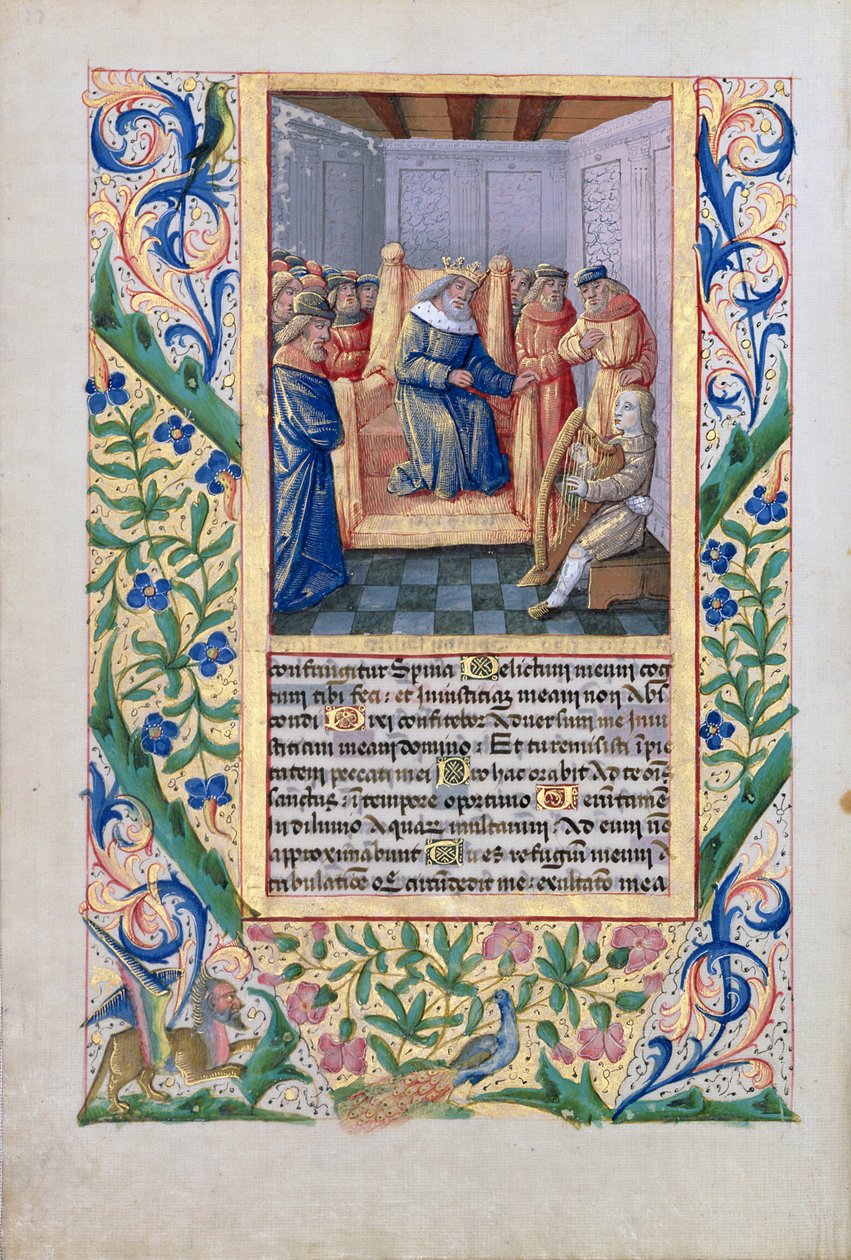 confringitur Spina Delictum meum cog
tum tibi feci : et Iniustitiam meam non Abs
condi Dixi confitebor Adversum me Iniu
stitiam meam domino : Et tu remisisti īpie
tatem peccati mei Pro hac orabit Ad te oīs
sanctus : ī tempore oportuno Verūtamē
In diluvio Aquarum multarum : Ad eum nō
approximabunt Tu es refugiūm meum A
tribulatiōe q̄ Circūdedit me : exultatio mea